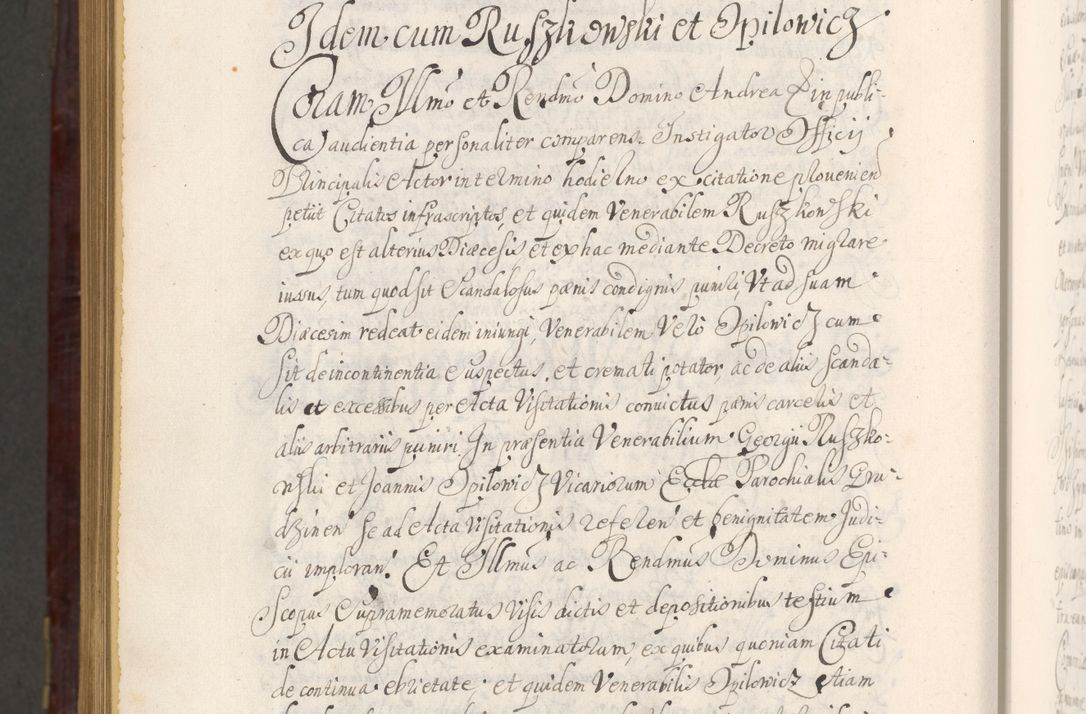 Idem cum Ruszkowski et Opilowicz
Coram Illmo et Rendmo Domino Andrea & in publi-
ca audientia personaliter comparens Instigator Officij
Principalis Actor in termino hodierno ex citatione provenien
petiit Citatos infrascriptos, et quidem Venerabilem Ruszkowski
ex quo est alterius Diœcesis et ex hac mediante Decreto migrare
iussus, tum quod sit Scandalosus pœnis condignis puniri, Vt ad suam
Diœcesim redeat eidem iniungi, Venerabilem Vero Opilowicz cum
sit de incontinentia Suspectus, et cremati potator, ac de aliis scanda-
lis et excessibus per Acta Visitationis convictus pœnis carceris et
aliis arbitrariis puniri. In præsentia Venerabilium Georgii Ruszko-
wski et Joannis Opilowicz Vicariorum Ecclæ Parochialis Gru-
dzinen se ad Acta Visitationis referen et benignitatem Judi-
cii imploran. Et Illmus ac Rendmus Dominus Epi-
scopus Supramemoratus Visis dictis et depositionibus testium
in Actu Visitationis examinatorum, ex quibus quoniam Citati
de continua ebrietate, et quidem Venerabilis Opilowicz etiam